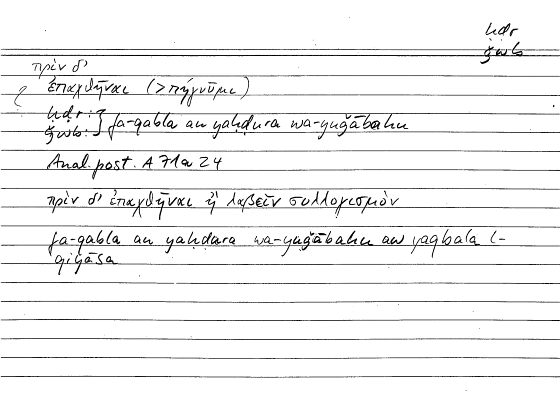 ḥḍr
ǧwb
πρὶν δ'
ἐπαχθῆναι (> πήγνυμι)
ḥḍr: } fa-qabla an yaḥḍura wa-yuǧābahu
ǧwb:
Anal. post. A 71a 24
πρὶν δ' ἐπαχθῆναι ἢ λαβεῖν συλλογισμὸν
fa-qabla an yaḥḍara wa-yuǧābahu aw yaqbala l-
qiyāsa